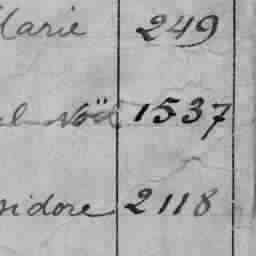 Marie 249
el Noël 1537
sidore 2118